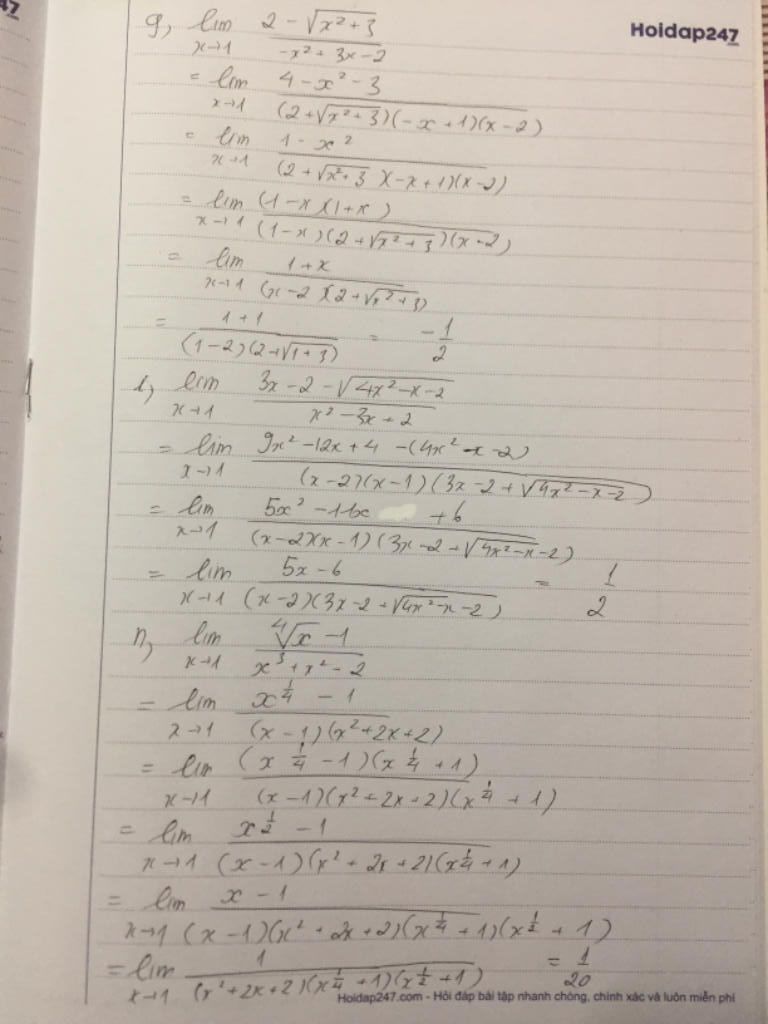 47
Hoidap247
g, lim x→1 (2 - √(x² + 3)) / (-x² + 3x - 2)
= lim x→1 (4 - x² - 3) / ((2 + √(x² + 3))(-x + 1)(x - 2))
= lim x→1 (1 - x²) / ((2 + √(x² + 3))(-x + 1)(x - 2))
= lim x→1 ((1 - x)(1 + x)) / ((1 - x)(2 + √(x² + 3))(x - 2))
= lim x→1 (1 + x) / ((x - 2)(2 + √(x² + 3)))
= (1 + 1) / ((1 - 2)(2 + √(1 + 3))) = -1/2
i, lim x→1 (3x - 2 - √(4x² - x - 2)) / (x² - 3x + 2)
= lim x→1 (9x² - 12x + 4 - (4x² - x - 2)) / ((x - 2)(x - 1)(3x - 2 + √(4x² - x - 2)))
= lim x→1 (5x² - 11x + 6) / ((x - 2)(x - 1)(3x - 2 + √(4x² - x - 2)))
= lim x→1 (5x - 6) / ((x - 2)(3x - 2 + √(4x² - x - 2))) = 1/2
n, lim x→1 (⁴√x - 1) / (x³ + x² - 2)
= lim x→1 (x^(1/4) - 1) / ((x - 1)(x² + 2x + 2))
= lim x→1 ((x^(1/4) - 1)(x^(1/4) + 1)) / ((x - 1)(x² + 2x + 2)(x^(1/4) + 1))
= lim x→1 (x^(1/2) - 1) / ((x - 1)(x² + 2x + 2)(x^(1/4) + 1))
= lim x→1 (x - 1) / ((x - 1)(x² + 2x + 2)(x^(1/4) + 1)(x^(1/2) + 1))
= lim x→1 1 / ((x² + 2x + 2)(x^(1/4) + 1)(x^(1/2) + 1)) = 1/20
Hoidap247.com - Hỏi đáp bài tập nhanh chóng, chính xác và luôn miễn phí